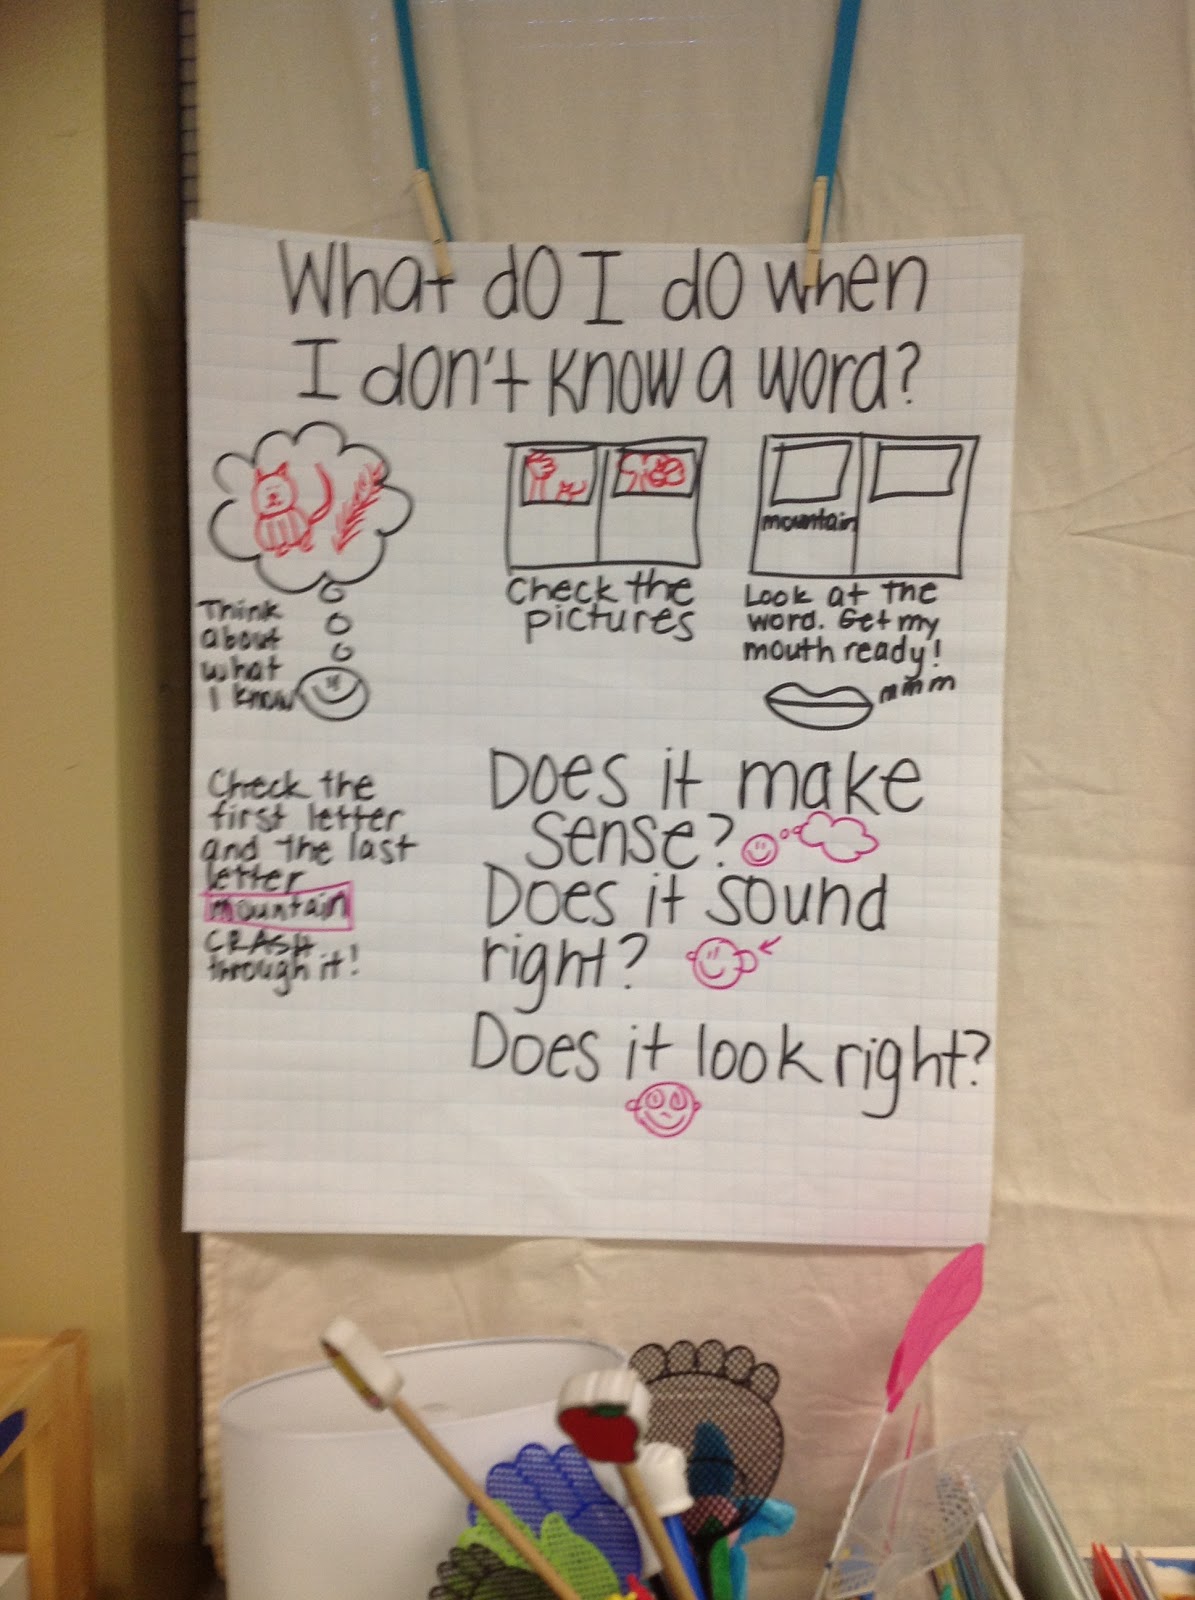 What do I do when
I don't know a word?
Think
about
what
I know
Check the
pictures
mountain
Look at the
word. Get my
mouth ready!
mmm
Check the
first letter
and the last
letter
mountain
CRASH
through it!
Does it make
sense?
Does it sound
right?
Does it look right?